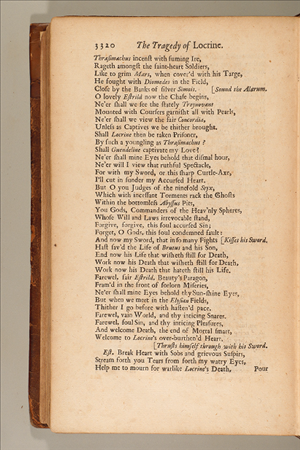 3320 The Tragedy of Locrine.
Thrasimachus incenst with fuming Ire,
Rageth amongst the faint-heart Soldiers,
Like to grim Mars, when cover'd with his Targe,
He fought with Diomedes in the Field,
Close by the Banks of silver Simois. [Sound the Alarum.
O lovely Estrild now the Chase begins,
Ne'er shall we see the stately Troynovant
Mounted with Coursers garnisht all with Pearls,
Ne'er shall we view the fair Concordia,
Unless as Captives we be thither brought.
Shall Locrine then be taken Prisoner,
By such a youngling as Thrasimachus?
Shall Guendoline captivate my Love?
Ne'er shall mine Eyes behold that dismal hour,
Ne'er will I view that ruthful Spectacle,
For with my Sword, or this sharp Curtle-Axe,
I'll cut in sunder my Accursed Heart.
But O you Judges of the ninefold Styx,
Which with incessant Torments rack the Ghosts
Within the bottomless Abyssus Pits,
You Gods, Commanders of the Heav'nly Spheres,
Whose Will and Laws irrevocable stand,
Forgive, forgive, this foul accursed Sin;
Forget, O Gods, this foul condemned fault:
And now my Sword, that in so many Fights [Kisses his Sword.
Hast sav'd the Life of Brutus and his Son,
End now his Life that wisheth still for Death,
Work now his Death that wisheth still for Death,
Work now his Death that hateth still his Life.
Farewel, fair Estrild, Beauty's Paragon,
Fram'd in the front of forlorn Miseries,
Ne'er shall mine Eyes behold thy Sun-shine Eyes,
But when we meet in the Elysian Fields,
Thither I go before with hasten'd pace.
Farewel, vain World, and thy inticing Snares.
Farewel, foul Sin, and thy inticing Pleasures,
And welcome Death, the end of Mortal smart,
Welcome to Locrine's over-burthen'd Heart.
[Thrusts himself through with his Sword.
Est. Break Heart with Sobs and grievous Suspirs,
Stream forth you Tears from forth my watry Eyes,
Help me to mourn for warlike Locrine's Death,
Pour